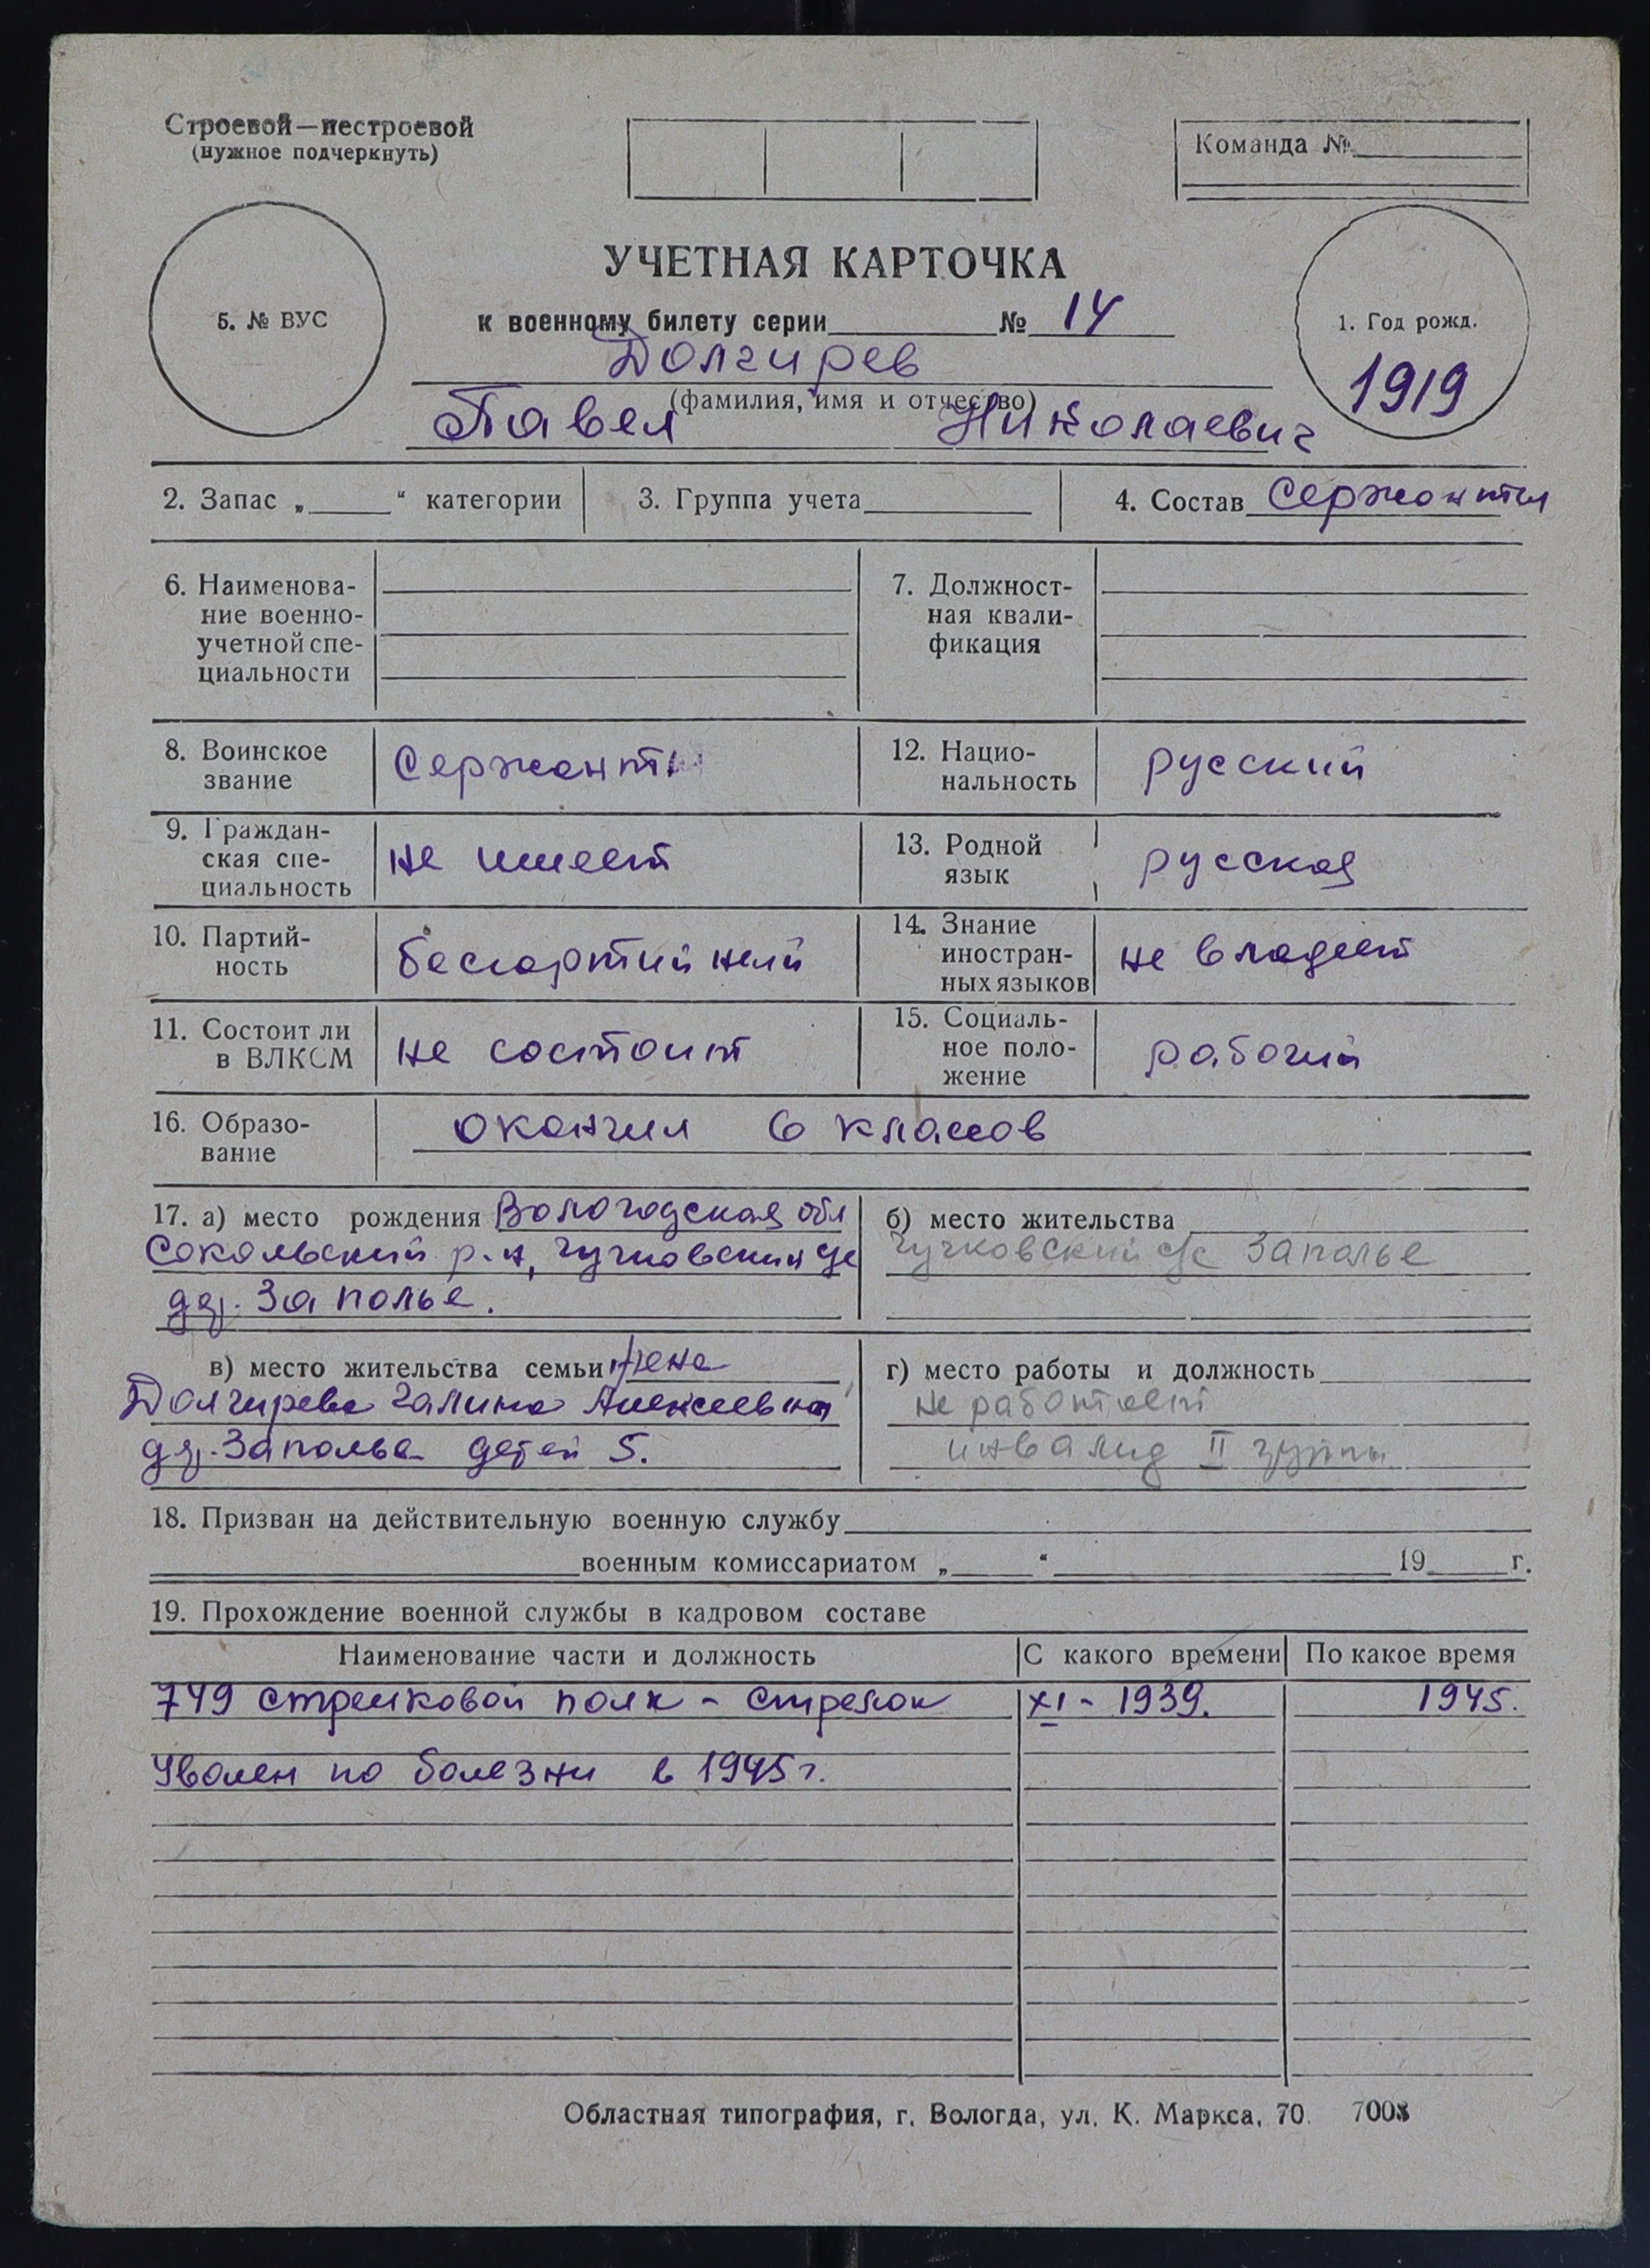 Строевой—нестроевой
(нужное подчеркнуть)
Команда №
УЧЕТНАЯ КАРТОЧКА
5. № ВУС
к военному билету серии № 14
1. Год рожд.
1919
Долгирев
(фамилия, имя и отчество)
Павел Николаевич
2. Запас „ “ категории
3. Группа учета
4. Состав Сержанты
6. Наименова-
ние военно-
учетной спе-
циальности
7. Должност-
ная квали-
фикация
8. Воинское
звание
Сержант
12. Нацио-
нальность
русский
9. Граждан-
ская спе-
циальность
не имеет
13. Родной
язык
русская
10. Партий-
ность
беспартийный
14. Знание
иностран-
ных языков
не владеет
11. Состоит ли
в ВЛКСМ
не состоит
15. Социаль-
ное поло-
жение
рабочий
16. Образо-
вание
окончил 6 классов
17. а) место рождения Вологодская обл
Сокольский р-н, Чучковский с/с
дер. Заполье.
б) место жительства
Чучковский с/с Заполье
в) место жительства семьи жена
Долгирева Галина Алексеевна
дер. Заполье детей 5.
г) место работы и должность
не работает
инвалид II группы
18. Призван на действительную военную службу
военным комиссариатом „ “ 19 г.
19. Прохождение военной службы в кадровом составе
Наименование части и должность С какого времени По какое время
749 стрелковой полк - стрелок XI - 1939. 1945.
Уволен по болезни в 1945 г.
Областная типография, г. Вологда, ул. К. Маркса, 70. 7008